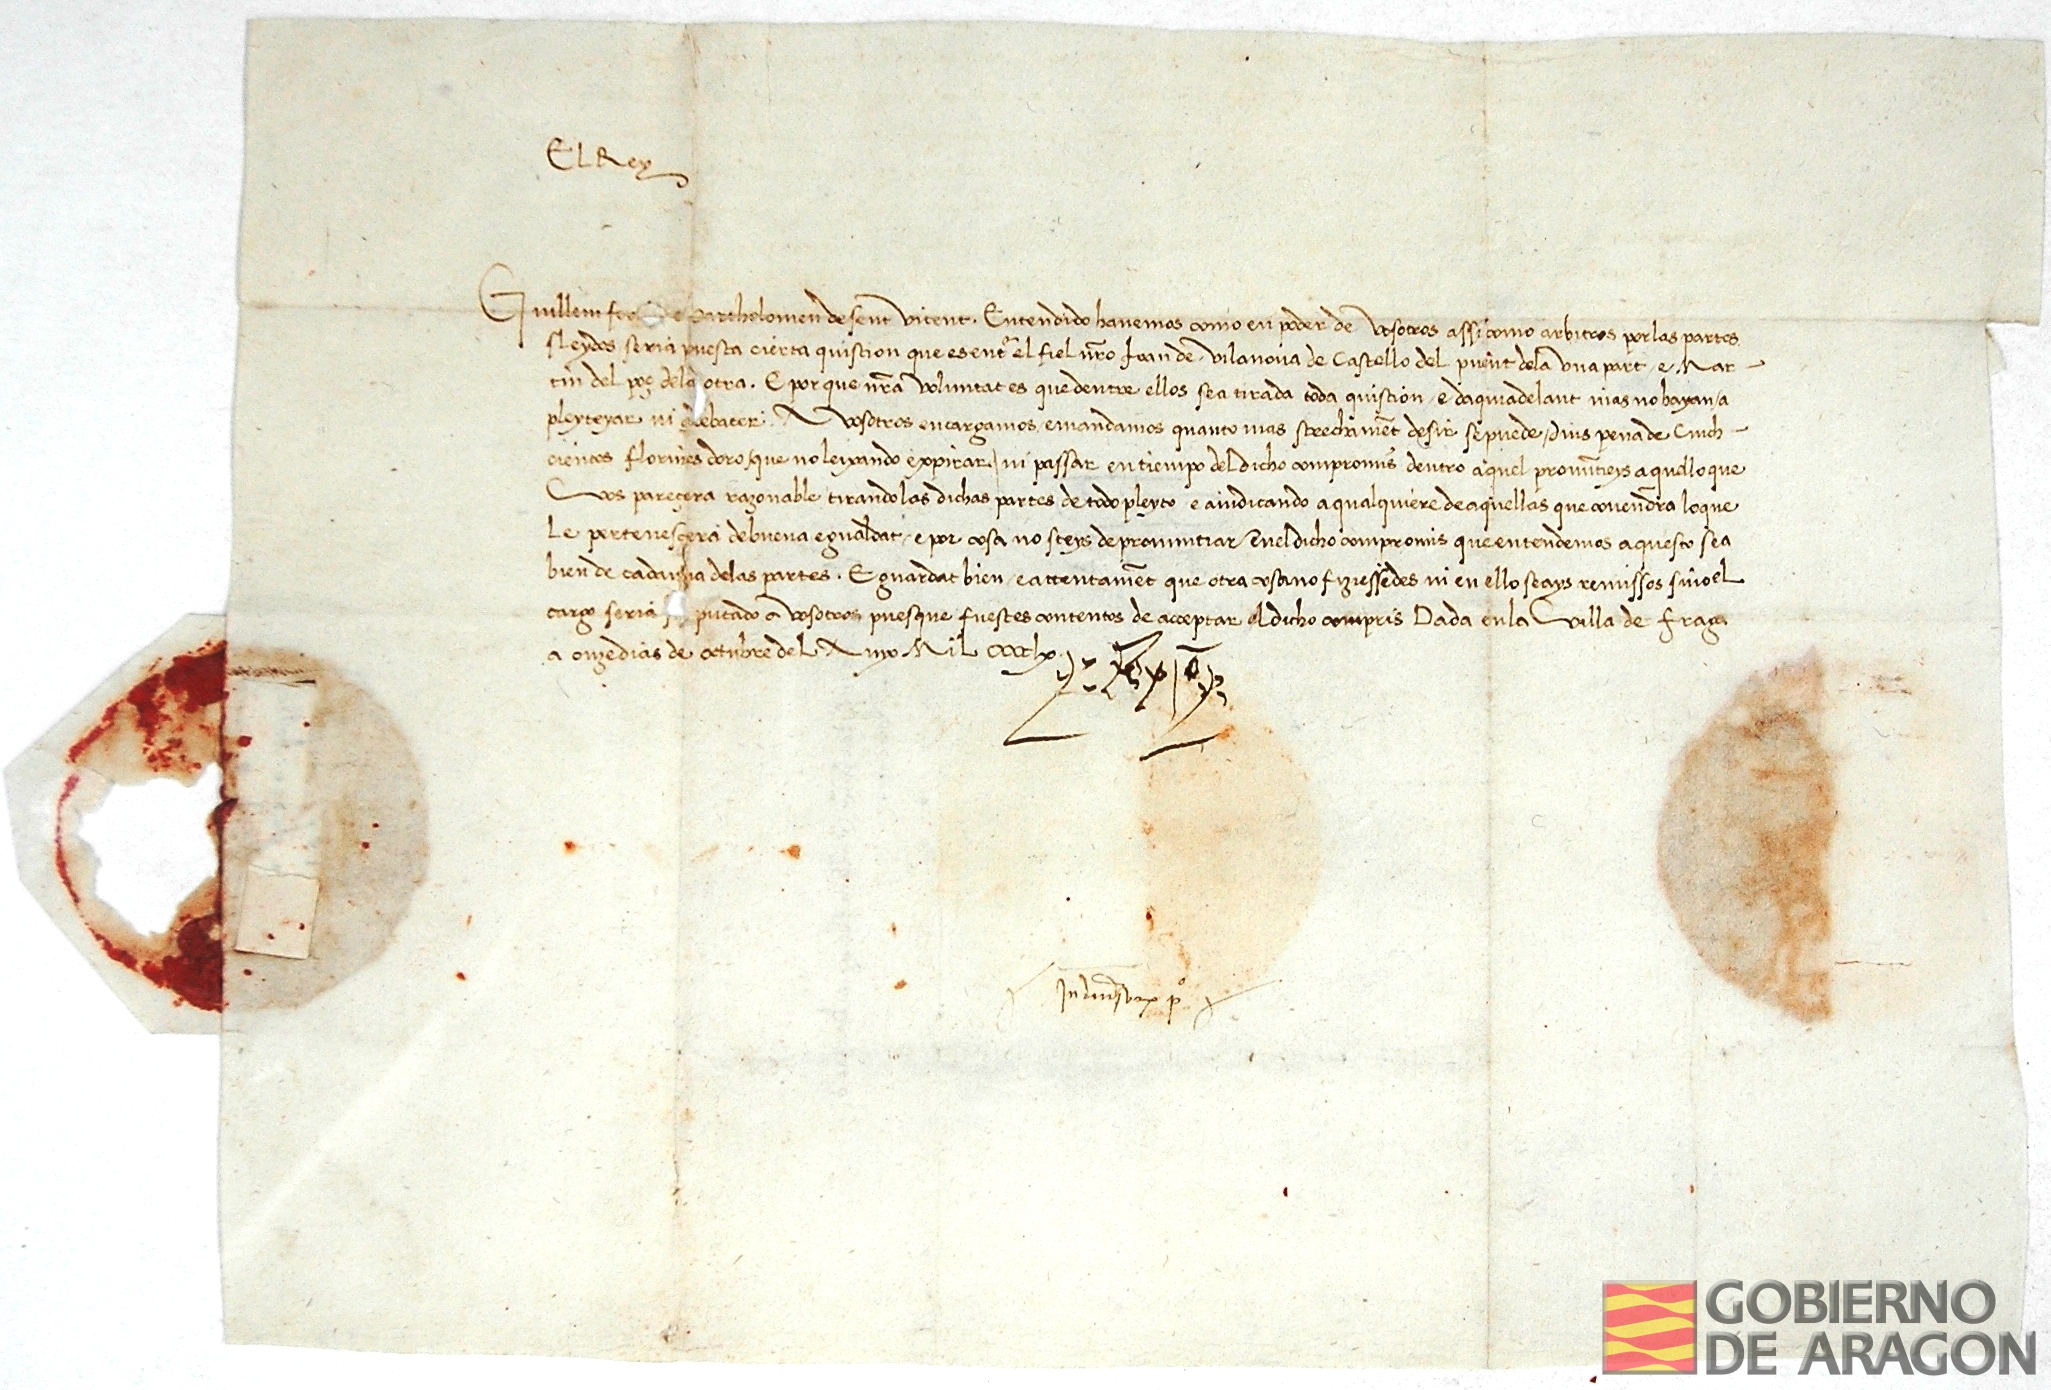 El Rey
Guillem de Bartholomeu de sent vicent. Entendido hauemos como en poder de vosotros assi como arbitros por las partes
sleydos seria puesta cierta quistion que es entre el fiel nro Joan de vilanoua de Castello del puent dela vna part e Mar-
tin del pog dela otra. E por que nra voluntat es que dentre ellos sea tirada toda quistion e daquiadelant mas no hayan a
pleyteyar ni debater. A vosotros encargamos e mandamos quanto mas strechamet desir se puede dius pena de Cinch-
cientos florines doro que no leixando expirar ni passar en tiempo del dicho compromis dentro aquel pronuncieys aquello que
vos parecera razonable tirando las dichas partes de todo pleyto e aiudicando a qualquiere de aquellas que conuendra lo que
le pertenescera de buena egualdat e por cosa no steys de pronuntiar en el dicho compromis que entendemos aquesto sea
bien de cadauna delas partes. E guardat bien e attentamet que otra cosa no fiziessedes ni en ello seays remissos sino el
cargo seria putado a vosotros pues que fuestes contentos de acceptar el dicho compris Dada en la villa de fraga
a onze dias de octubre del Anyo Mil cccclx.
GOBIERNO
DE ARAGON